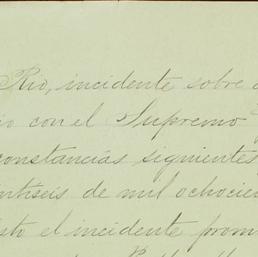 Rio, incidente sobre
con el Supremo
constancias siguientes
de mil ochocien
el incidente prom